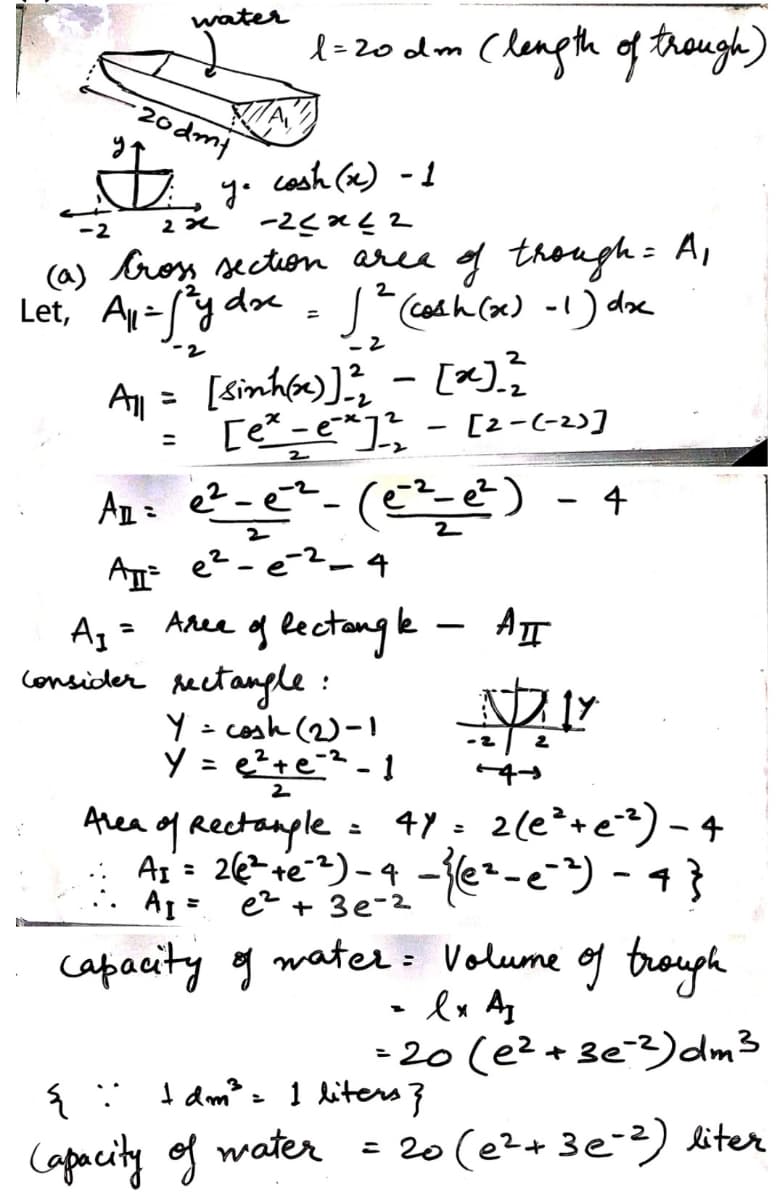 water
l = 20 dm (length of trough)
A₁
20dm
y
y = cosh(x) - 1
-2 2 x -2 ≤ x ≤ 2
(a) Cross section area of trough = A₁
Let, A_II = ∫₋₂² y dx = ∫₋₂² (cosh(x) - 1) dx
A_II = [sinh(x)]₋₂² - [x]₋₂²
= [(eˣ - e⁻ˣ)/2]₋₂² - [2-(-2)]
A_II = (e² - e⁻²)/2 - ((e⁻² - e²)/2) - 4
A_II = e² - e⁻² - 4
A_I = Area of Rectangle - A_II
Consider rectangle :
Y = cosh(2) - 1
Y
Y = (e² + e⁻²)/2 - 1
-2 2
4
Area of Rectangle = 4Y = 2(e² + e⁻²) - 4
∴ A_I = 2(e² + e⁻²) - 4 - {(e² - e⁻²) - 4}
∴ A_I = e² + 3e⁻²
Capacity of water = Volume of trough
= l × A_I
= 20 (e² + 3e⁻²) dm³
{ ∵ 1 dm³ = 1 liters }
Capacity of water = 20 (e² + 3e⁻²) liter